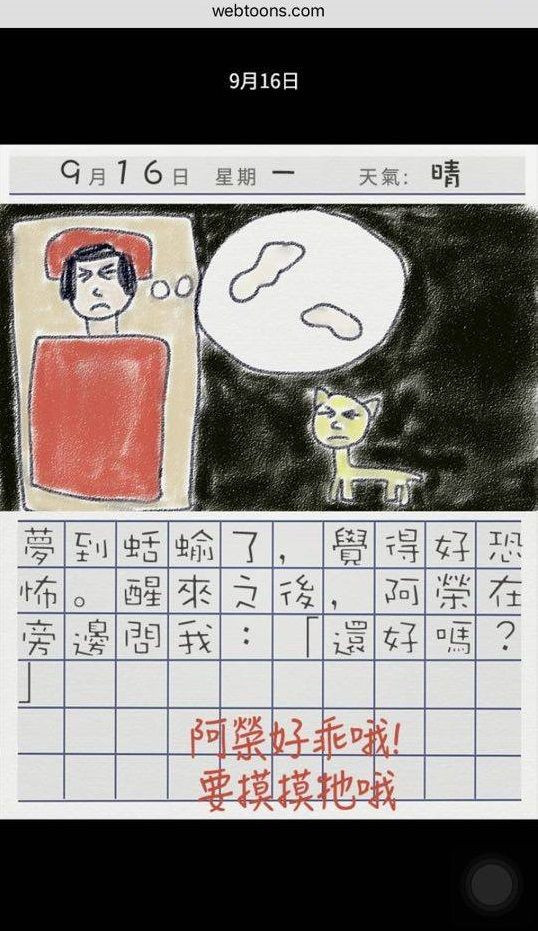 webtoons.com
9月16日
9月16日 星期一 天氣: 晴
夢到蛞蝓了，覺得好恐
怖。醒來之後，阿榮在
旁邊問我：「還好嗎？
」
阿榮好乖哦!
要摸摸牠哦